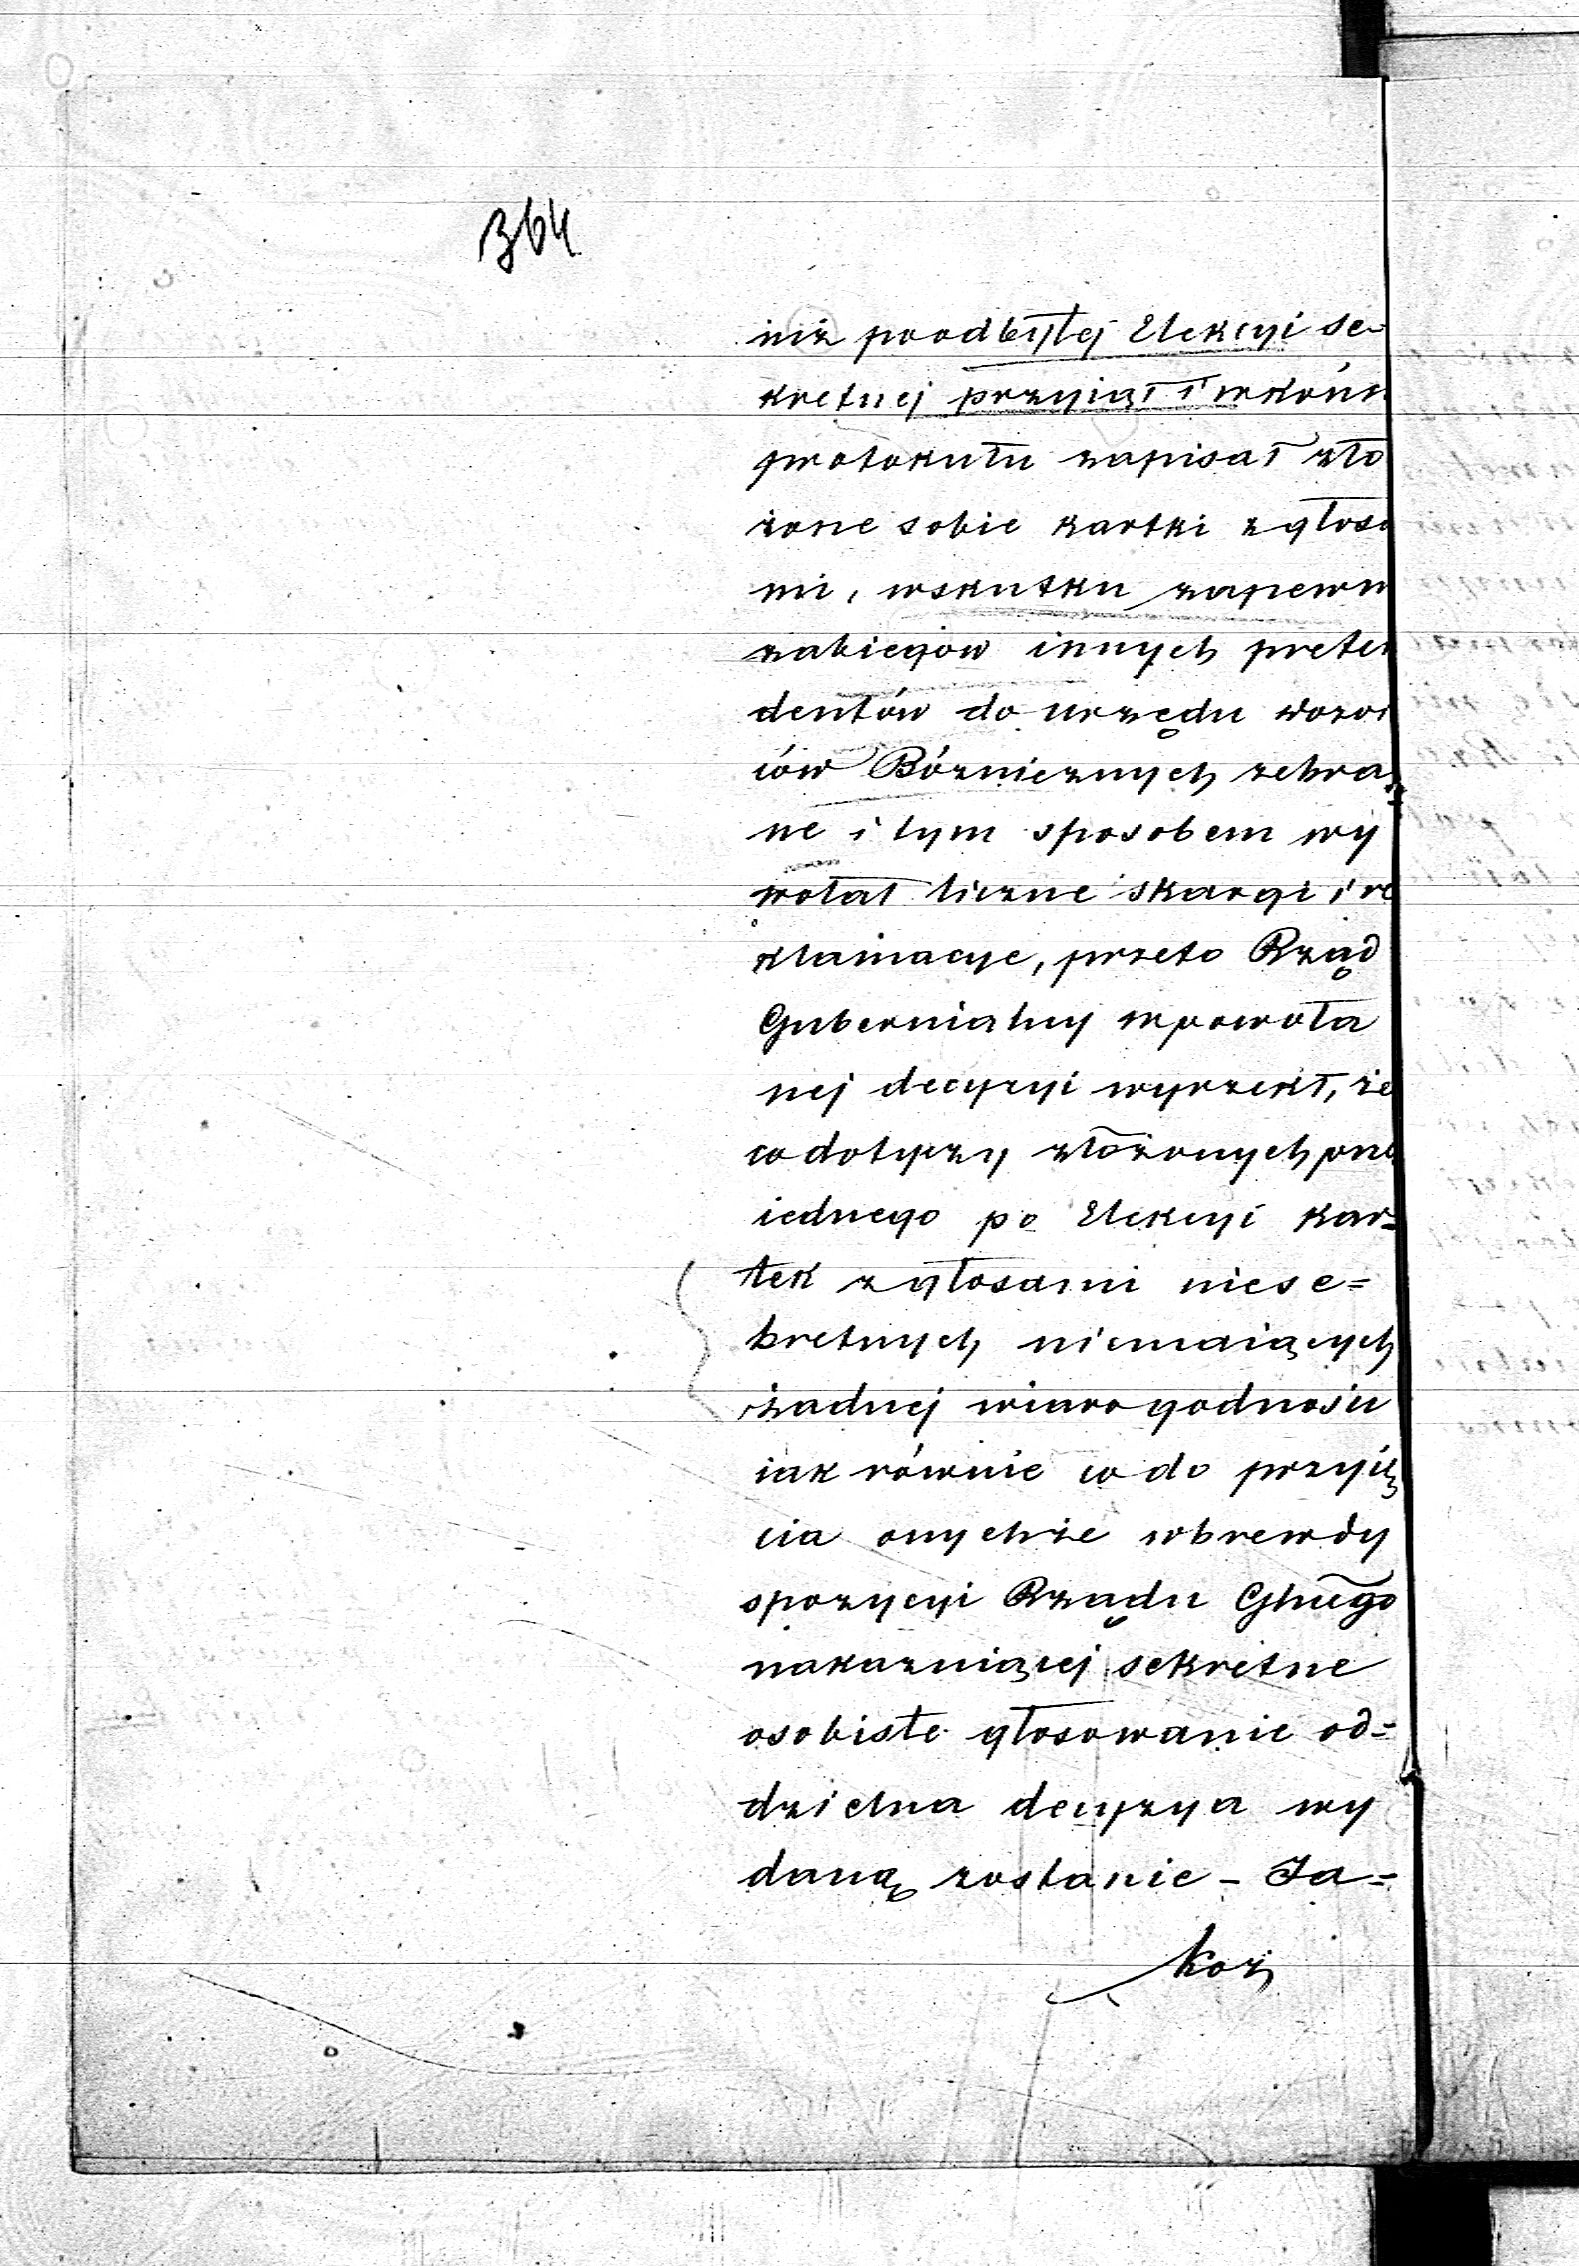 364
iuż poodbytej Elekcyi se-
kretnej przyiął i wkońc
protokułu zapisał zło
żone sobie kartki zgłosa
mi, wskutku zapewn
zabiegów innych preten
dentów do urzędu dozor
ców Bóżnicznych zebra
ne i tym sposobem wy
wołał liczne skargi i re
klamacye, przeto Rząd
Gubernialny wpowoła
nej decyzyi wyrzekł, że
co dotyczy złożonych prze
iednego po Elekcyi kar=
tek zgłosami niese=
kretnych niemaiących
żadnej wiarogodności
iak równie co do przyię
cia onychże wbrew dy
spozycyi Rządu Gbnego
nakazuiącej sekretne
osobiste głosowanie od=
dzielna decyzya wy
daną zostanie - Ja=
koż